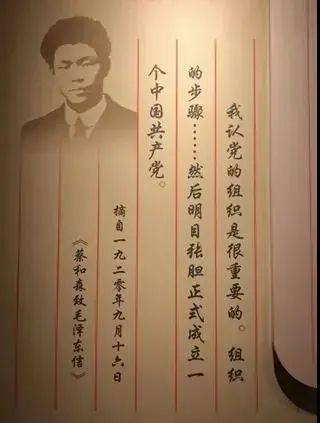 我认党的组织是很重要的。组织
的步骤……然后明目张胆正式成立一
个中国共产党。
摘自一九二零年九月十六日
《蔡和森致毛泽东信》